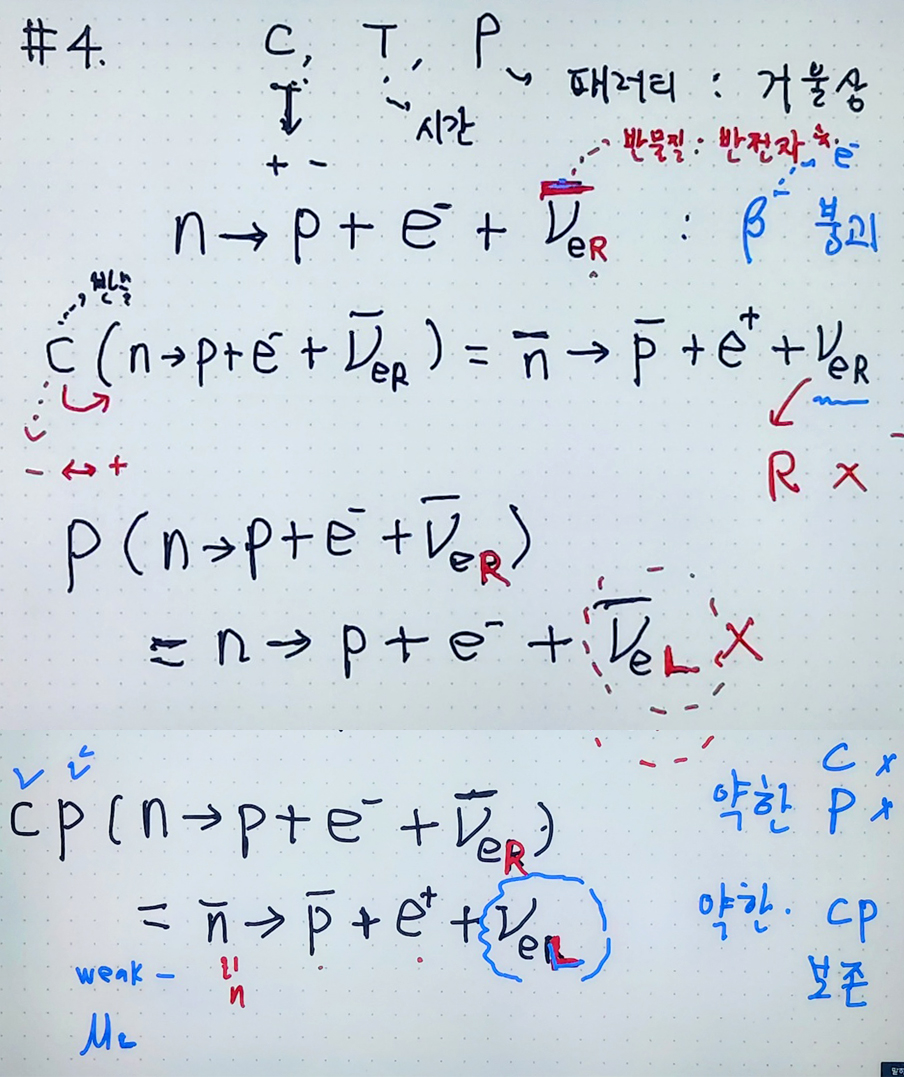 #4. C, T, P
패러티 : 거울상
시간
+ -
반물질 : 반전자
e⁻
n → p + e⁻ + ν̄eR : β⁻ 붕괴
C ( n → p + e⁻ + ν̄eR ) = n̄ → p̄ + e⁺ + νeR
- ↔ +
R ×
P ( n → p + e⁻ + ν̄eR )
= n → p + e⁻ + ν̄eL ×
CP ( n → p + e⁻ + ν̄eR )
C ×
약한 P ×
= n̄ → p̄ + e⁺ + νeL
약한. CP
보존
weak -
n